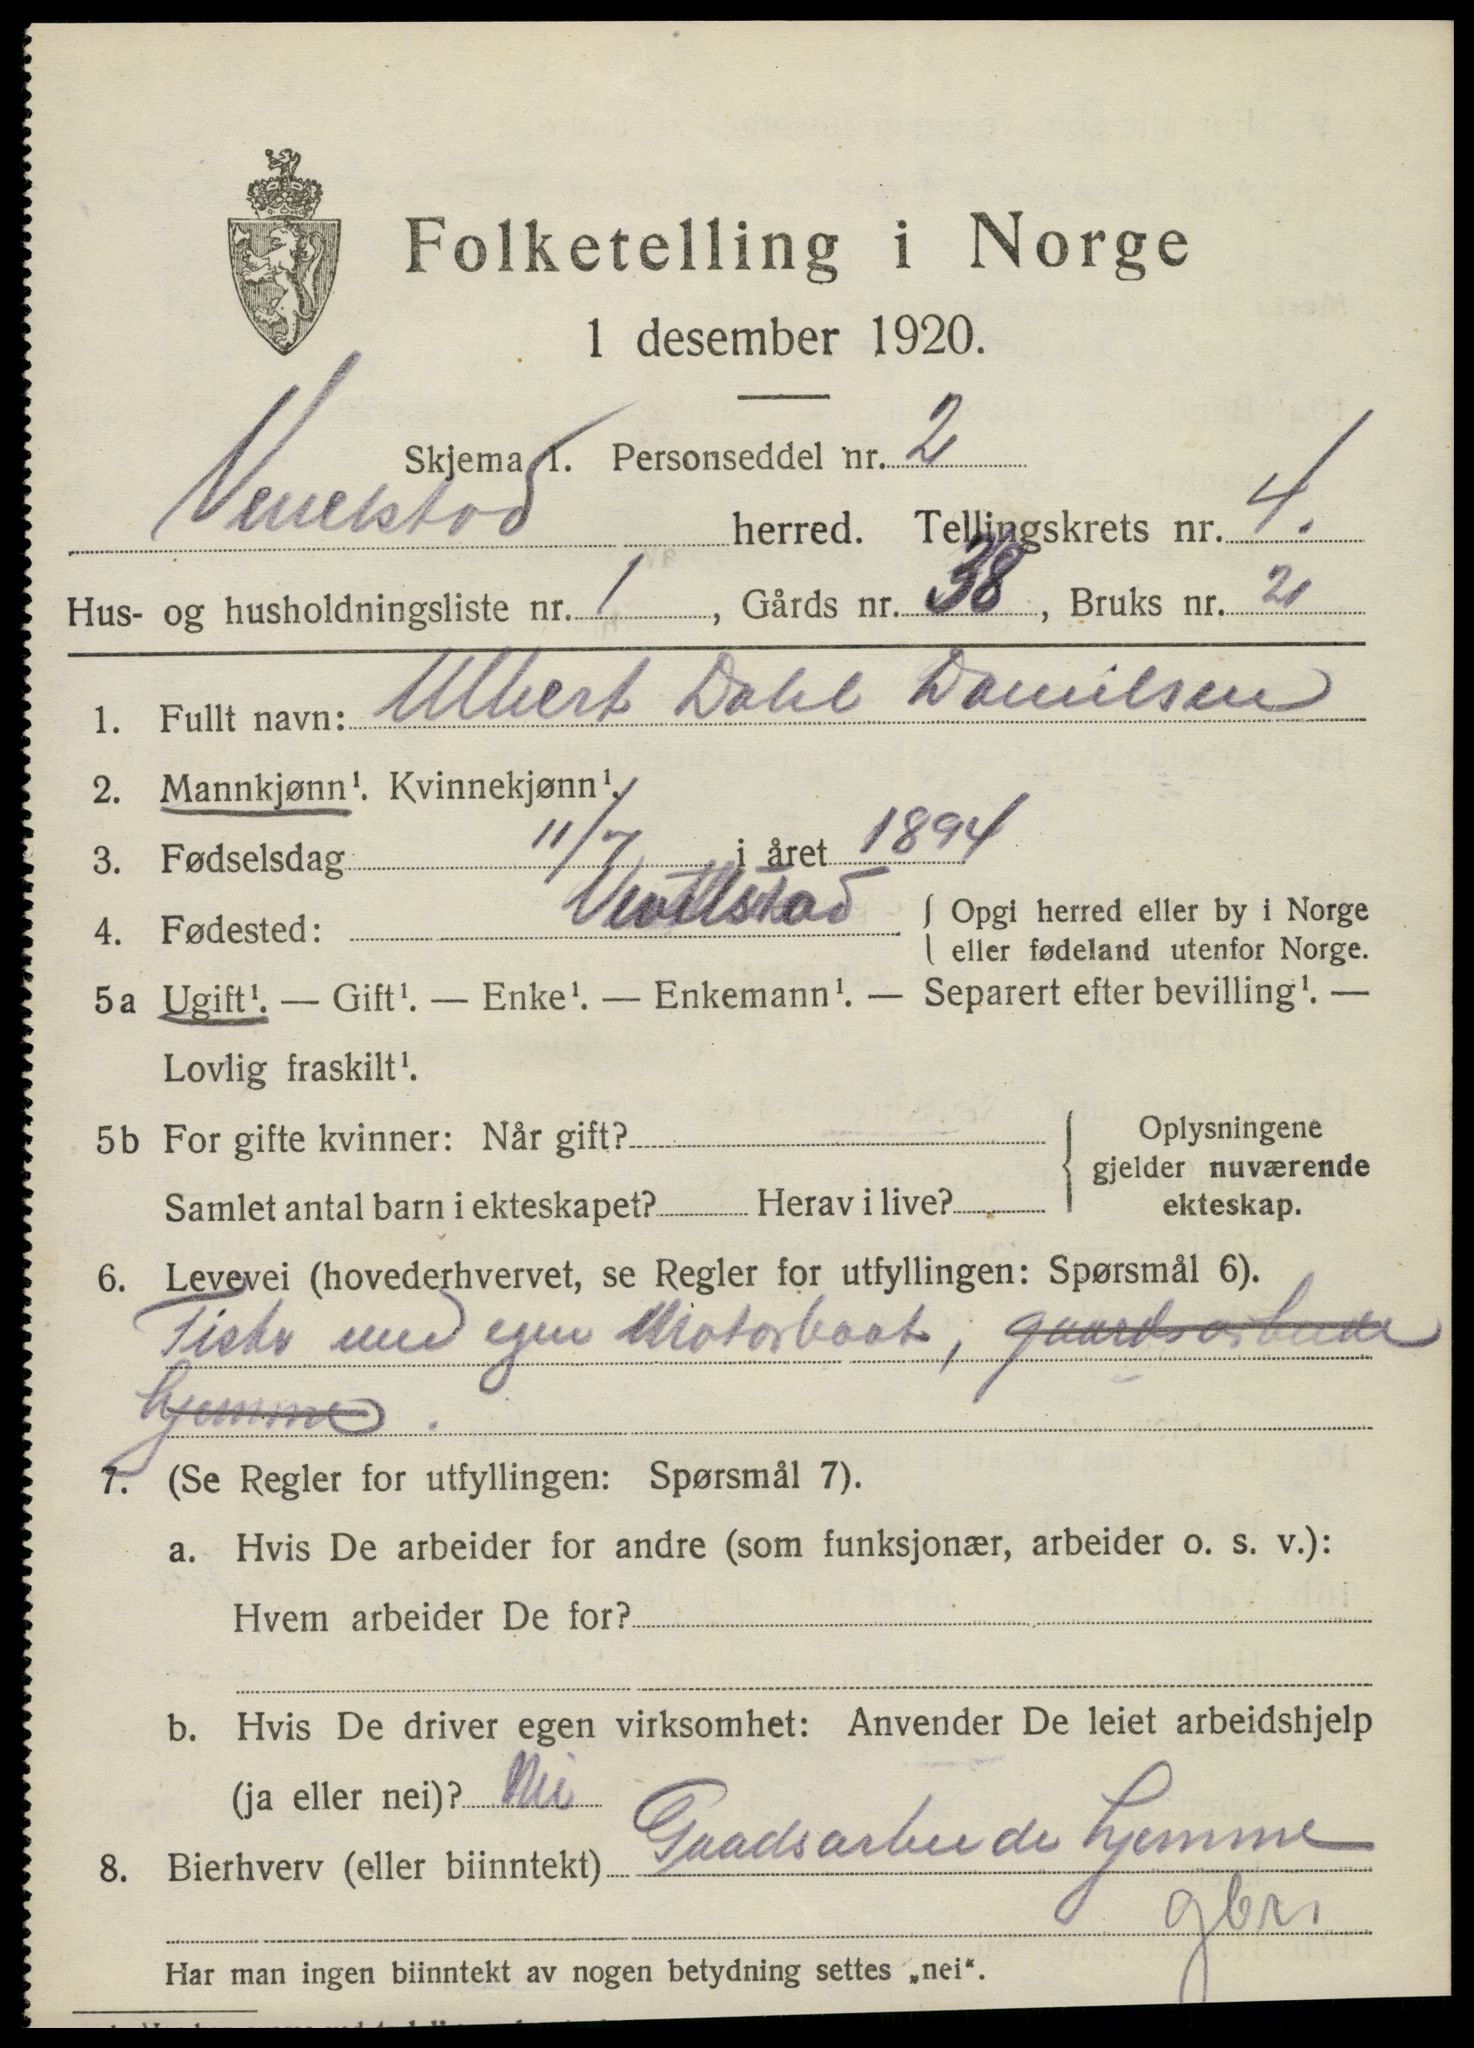 Folketelling i Norge
1 desember 1920.
Skjema 1. Personseddel nr. 2
Vevelstad herred. Tellingskrets nr. 4.
Hus- og husholdningsliste nr. 1, Gårds nr. 38, Bruks nr. 2
1. Fullt navn: Albert Dahl Danielsen
2. Mannkjønn¹. Kvinnekjønn¹.
3. Fødselsdag 11/7 i året 1894
4. Fødested: Vevelstad { Opgi herred eller by i Norge
eller fødeland utenfor Norge.
5a Ugift¹. — Gift¹. — Enke¹. — Enkemann¹. — Separert efter bevilling¹. —
Lovlig fraskilt¹.
5b For gifte kvinner: Når gift? { Oplysningene
gjelder nuværende
Samlet antal barn i ekteskapet? Herav i live? ekteskap.
6. Levevei (hovederhvervet, se Regler for utfyllingen: Spørsmål 6).
Fisker med egen Motorbaat, gaardsarbeide
hjemme.
7. (Se Regler for utfyllingen: Spørsmål 7).
a. Hvis De arbeider for andre (som funksjonær, arbeider o. s. v.):
Hvem arbeider De for?
b. Hvis De driver egen virksomhet: Anvender De leiet arbeidshjelp
(ja eller nei)? Nei
8. Bierhverv (eller biinntekt) Gaardsarbeide hjemme
gbr
Har man ingen biinntekt av nogen betydning settes „nei“.